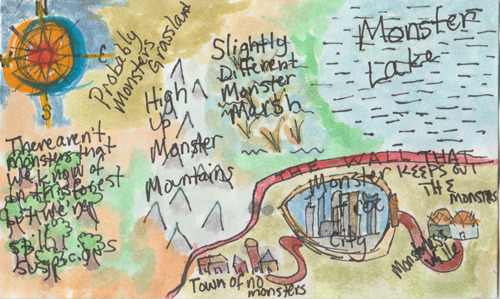 Probably
Monsters
Grassland
Slightly
Different
Monster
Marsh
Monster
Lake
High
Up
Monster
Mountains
There aren't
monsters that
we know of
in this forest
but we're
still
S
THE WALL THAT
KEEPS OUT
THE
MONSTERS
Monster
Free
City
Town of no
monsters